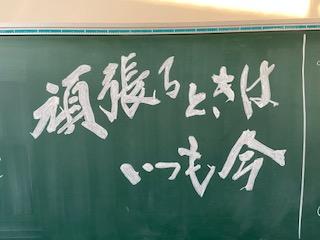 頑張るときは
いつも今